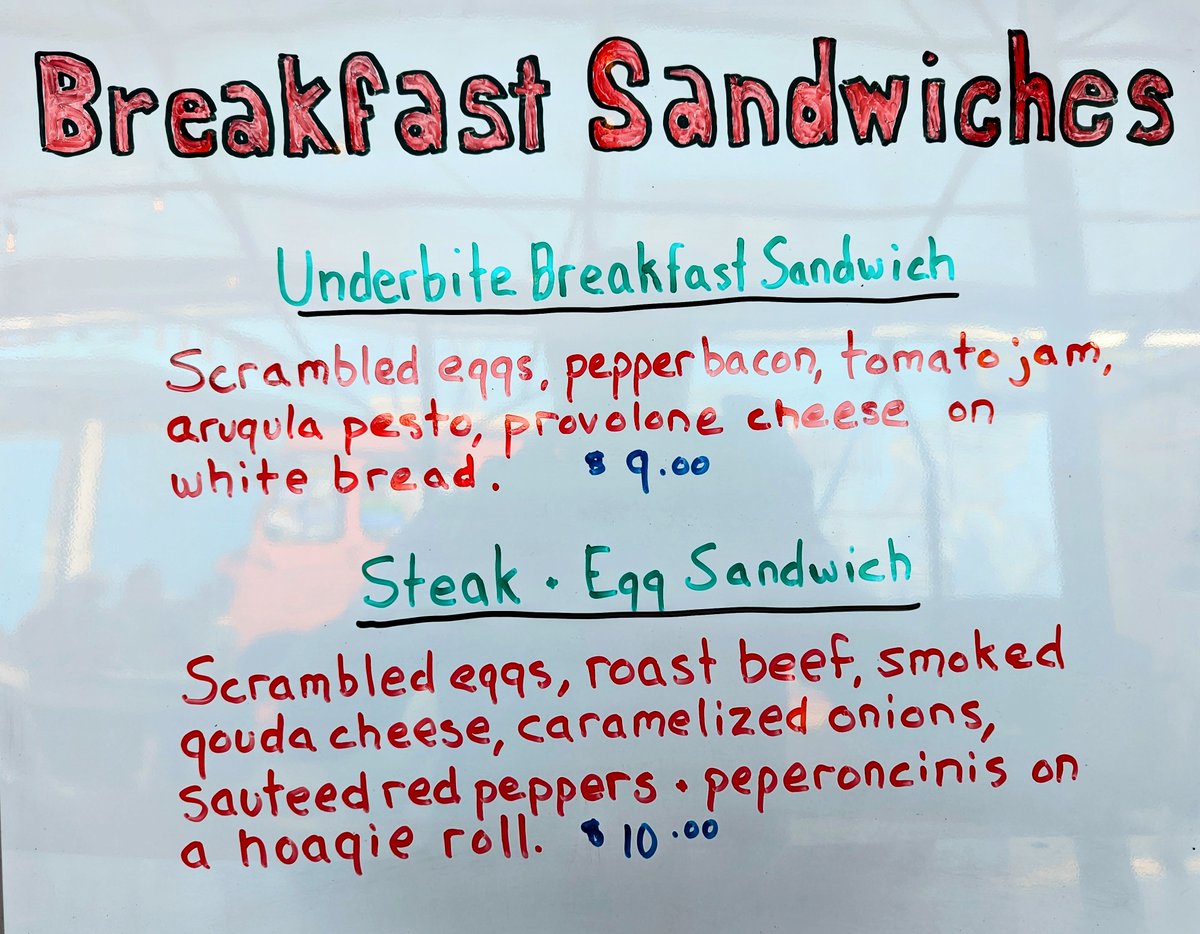 Breakfast Sandwiches
Underbite Breakfast Sandwich
Scrambled eggs, pepper bacon, tomato jam,
arugula pesto, provolone cheese on
white bread. $9.00
Steak • Egg Sandwich
Scrambled eggs, roast beef, smoked
gouda cheese, caramelized onions,
sauteed red peppers • peperoncinis on
a hoagie roll. $10.00